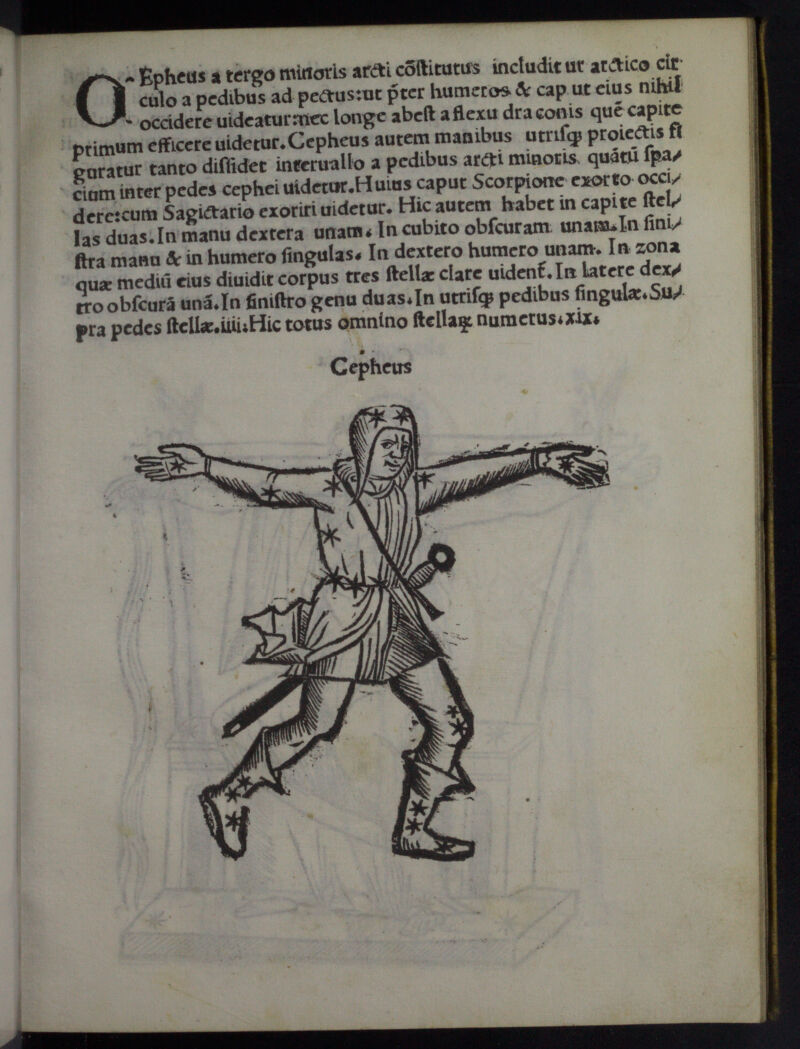 C Epheus a tergo minoris arcti cõſtitutus includit ut arctico cir
culo a pedibus ad pectus:ut p̃ter humeros & cap ut eius nihil
occidere uideatur:nec longe abeſt a flexu draconis quẽ capite
primum efficere uidetur.Cepheus autem manibus utriſqꝫ proiectis fi
guratur tanto diſſidet interuallo a pedibus arcti minoris. quãtũ ſpa/
cium inter pedes cephei uidetur.Huius caput Scorpione exorto occi/
dere:cum Sagictario exoriri uidetur. Hic autem habet in capite ſtel/
las duas.In manu dextera unam. In cubito obſcuram unam.In ſini/
ſtra manu & in humero ſingulas. In dextero humero unam. In zona
quæ mediũ eius diuidit corpus tres ſtellæ clare uident̃.In latere dex/
tro obſcurã unã.In ſiniſtro genu duas.In utriſqꝫ pedibus ſingulæ.Su/
pra pedes ſtellæ.iiii.Hic totus omnino ſtellaꝝ numerus.xix.
Cepheus